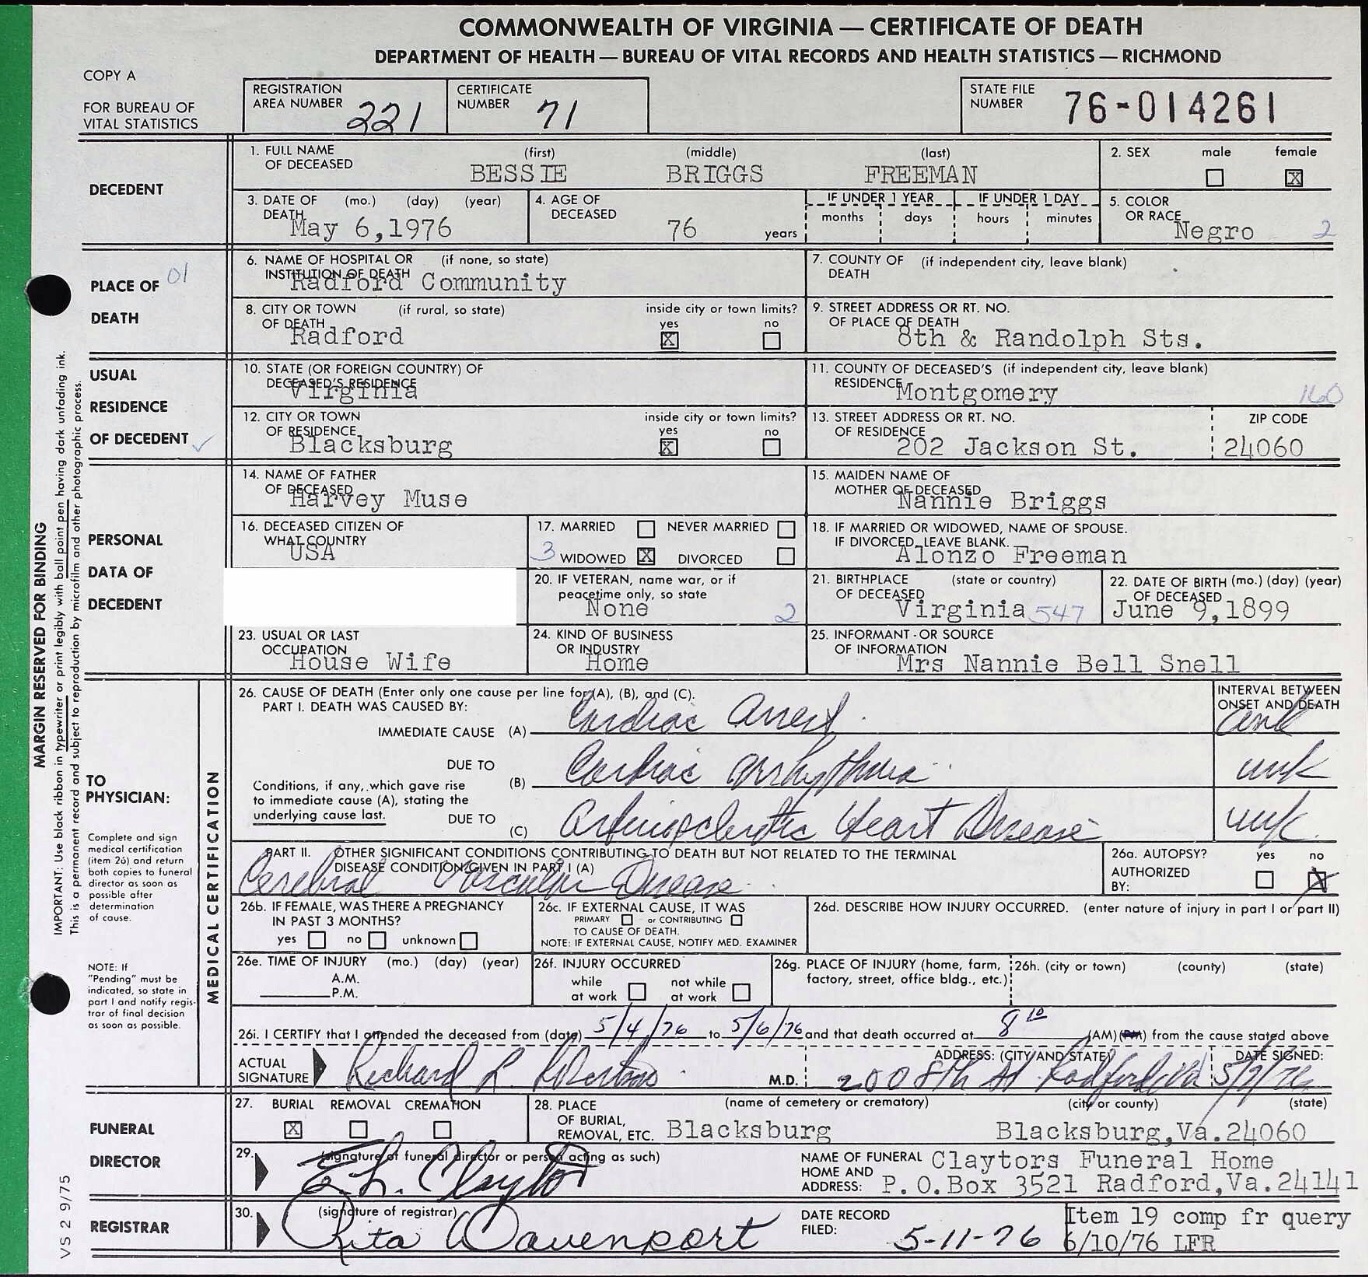 COMMONWEALTH OF VIRGINIA — CERTIFICATE OF DEATH
DEPARTMENT OF HEALTH — BUREAU OF VITAL RECORDS AND HEALTH STATISTICS — RICHMOND
COPY A
FOR BUREAU OF VITAL STATISTICS
REGISTRATION AREA NUMBER 221
CERTIFICATE NUMBER 71
STATE FILE NUMBER 76-014261
DECEDENT
1. FULL NAME OF DECEASED (first) (middle) (last)
BESSIE BRIGGS FREEMAN
2. SEX male female X
3. DATE OF DEATH (mo.) (day) (year)
May 6,1976
4. AGE OF DECEASED 76 years
IF UNDER 1 YEAR months days
IF UNDER 1 DAY hours minutes
5. COLOR OR RACE Negro 2
PLACE OF DEATH 01
6. NAME OF HOSPITAL OR INSTITUTION OF DEATH (if none, so state)
Radford Community
7. COUNTY OF DEATH (if independent city, leave blank)
8. CITY OR TOWN OF DEATH (if rural, so state) inside city or town limits? yes X no
Radford
9. STREET ADDRESS OR RT. NO. OF PLACE OF DEATH
8th & Randolph Sts.
USUAL RESIDENCE OF DECEDENT ✓
10. STATE (OR FOREIGN COUNTRY) OF DECEASED'S RESIDENCE
Virginia
11. COUNTY OF DECEASED'S RESIDENCE (if independent city, leave blank)
Montgomery 160
12. CITY OR TOWN OF RESIDENCE inside city or town limits? yes X no
Blacksburg
13. STREET ADDRESS OR RT. NO. OF RESIDENCE
202 Jackson St.
ZIP CODE 24060
PERSONAL DATA OF DECEDENT
14. NAME OF FATHER OF DECEASED
Harvey Muse
15. MAIDEN NAME OF MOTHER OF DECEASED
Nannie Briggs
16. DECEASED CITIZEN OF WHAT COUNTRY
USA
17. MARRIED NEVER MARRIED
3 WIDOWED X DIVORCED
18. IF MARRIED OR WIDOWED, NAME OF SPOUSE. IF DIVORCED, LEAVE BLANK.
Alonzo Freeman
20. IF VETERAN, name war, or if peacetime only, so state
None 2
21. BIRTHPLACE OF DECEASED (state or country)
Virginia 547
22. DATE OF BIRTH (mo.) (day) (year) OF DECEASED
June 9,1899
23. USUAL OR LAST OCCUPATION
House Wife
24. KIND OF BUSINESS OR INDUSTRY
Home
25. INFORMANT - OR SOURCE OF INFORMATION
Mrs Nannie Bell Snell
TO PHYSICIAN:
Complete and sign medical certification (item 26) and return both copies to funeral director as soon as possible after determination of cause.
NOTE: If "Pending" must be indicated, so state in part I and notify registrar of final decision as soon as possible.
MEDICAL CERTIFICATION
26. CAUSE OF DEATH (Enter only one cause per line for (A), (B), and (C).
PART I. DEATH WAS CAUSED BY:
INTERVAL BETWEEN ONSET AND DEATH
IMMEDIATE CAUSE (A) Cardiac Arrest
DUE TO (B) Cardiac Arrhythmia unk
Conditions, if any, which gave rise to immediate cause (A), stating the underlying cause last.
DUE TO (C) Arteriosclerotic Heart Disease unk
PART II. OTHER SIGNIFICANT CONDITIONS CONTRIBUTING TO DEATH BUT NOT RELATED TO THE TERMINAL DISEASE CONDITION GIVEN IN PART I (A)
Cerebral Vascular Disease
26a. AUTOPSY? yes no X
AUTHORIZED BY:
26b. IF FEMALE, WAS THERE A PREGNANCY IN PAST 3 MONTHS?
yes no unknown
26c. IF EXTERNAL CAUSE, IT WAS
PRIMARY or CONTRIBUTING
TO CAUSE OF DEATH.
NOTE: IF EXTERNAL CAUSE, NOTIFY MED. EXAMINER
26d. DESCRIBE HOW INJURY OCCURRED. (enter nature of injury in part I or part II)
26e. TIME OF INJURY (mo.) (day) (year)
A.M.
P.M.
26f. INJURY OCCURRED
while at work not while at work
26g. PLACE OF INJURY (home, farm, factory, street, office bldg., etc.)
26h. (city or town) (county) (state)
26i. I CERTIFY that I attended the deceased from (date) 5/4/76 to 5/6/76 and that death occurred at 8 10 (AM) (PM) from the cause stated above
ACTUAL SIGNATURE Richard L M.D.
ADDRESS: (CITY AND STATE) 200 8th St Radford Va
DATE SIGNED: 5/7/76
FUNERAL DIRECTOR
27. BURIAL X REMOVAL CREMATION
28. PLACE OF BURIAL, REMOVAL, ETC. (name of cemetery or crematory) (city or county) (state)
Blacksburg Blacksburg,Va.24060
29. (signature of funeral director or person acting as such)
E.L. Claytor
NAME OF FUNERAL HOME AND ADDRESS: Claytors Funeral Home
P.O.Box 3521 Radford,Va.24141
REGISTRAR
30. (signature of registrar)
Rita Davenport
DATE RECORD FILED: 5-11-76
Item 19 comp fr query
6/10/76 LFR
VS 2 9/75
MARGIN RESERVED FOR BINDING
IMPORTANT: Use black ribbon in typewriter or print legibly with ball point pen having dark unfading ink.
This is a permanent record and subject to reproduction by microfilm and other photographic process.